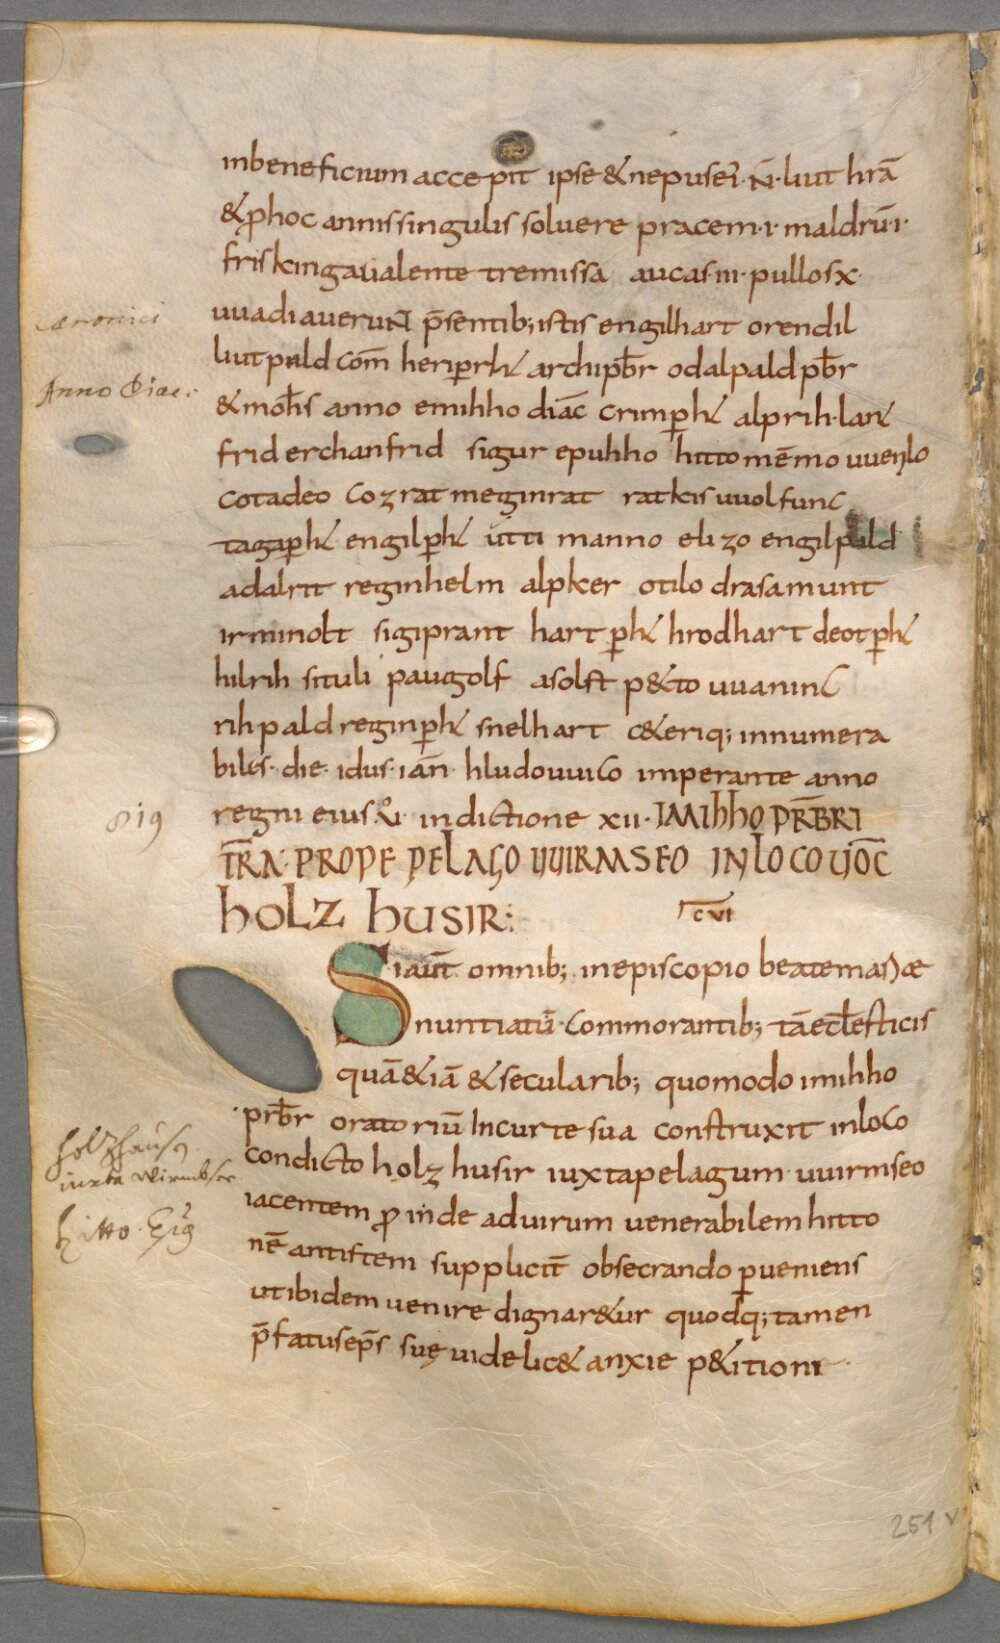 inbeneficium accepit ipse & nepus ei·N̄·liut hrā
& ꝓhoc annis singulis soluere pracem·i·maldrū·i·
friskinga ualente tremissa aucas·iii·pullos x·
uuadiauerunt p̄sentib; istis engilhart orendil
Canonici
liutpald com̄ heriꝑht archipb̄r odalpald pb̄r
Anno Diac:
& moh̄s anno emihho diāc crimꝑht alprih·lant
frid erchanfrid sigur epuhho hitto mēmo uuenilo
cotadeo cozrat meginrat ratkis uuolfunc
tagaꝑht engilꝑht utti manno elizo engilpald
adalrit reginhelm alpker otilo drasamunt
irminolt sigiprant hartꝑht hrodhart deotꝑht
hilrih situli paugolf asolft p&to uuaninc
rihpald reginꝑht snelhart c&eriq; innumera
biles· die· idus· ian̄· hludouuico imperante anno
819
regni eius ui· indictione xii· IMIhhO PRB̄RI
TR̄A· PROPE PELAGO UUIRMSEO IN LOCO UOC̄
hOLZ hUSIR:
CVI
Siaut̄ omnib; inepiscopio beate mariæ
nuntiatū· commorantib; tā ecl̄esticis
quā & iā & secularib; quomodo imihho
prb̄r oratoriū In curte sua construxit inloco
holzhausen
condicto holz husir iuxta pelagum· uuirmseo
iuxta Wirmbsee
iacentem ꝓinde aduirum uenerabilem hitto
hitto· Epũs
nē antistem supplicit̄ obsecrando ꝑueniens
utibidem uenire dignar&ur quodq; tamen
p̄fatus ep̄s suę uidelic& anxie p&itioni·
251 v